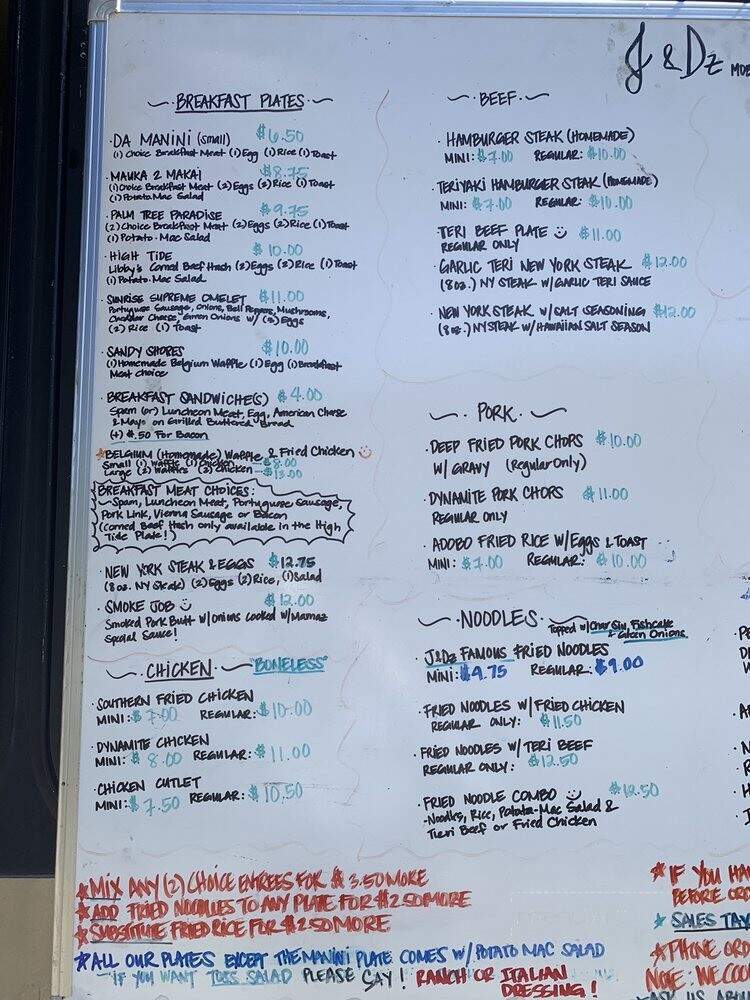 J & Dz MOB
~·BREAKFAST PLATES·~
·DA MANINI (small) $6.50
(1) Choice Breakfast Meat (1) Egg (1) Rice (1) Toast
·MAUKA 2 MAKAI $8.75
(1) Choice Breakfast Meat (2) Eggs (2) Rice (1) Toast
(1) Potato.Mac Salad
·PALM TREE PARADISE $9.75
(2) Choice Breakfast Meat (2) Eggs (2) Rice (1) Toast
(1) Potato-Mac Salad
·HIGH TIDE $10.00
Libby's Corned Beef Hash (2) Eggs (2) Rice (1) Toast
(1) Potato.Mac Salad
·SUNRISE SUPREME OMELET $11.00
Portuguese Sausage, Onions, Bell Peppers, Mushrooms,
Cheddar Cheese, Green Onions w/ (3) Eggs
(2) Rice (1) Toast
·SANDY SHORES $10.00
(1) Homemade Belgium Waffle (1) Egg (1) Breakfast
Meat Choice
·BREAKFAST SANDWICHE(S) $4.00
Spam (or) Luncheon Meat, Egg, American Cheese
& Mayo on Grilled Buttered Bread
(+) $.50 For Bacon
☆BELGIUM (Homemade) Waffle & Fried Chicken ☺
Small (1) Waffle (1) Chicken - $8.00
Large (2) Waffles (2) Chicken - $13.00
BREAKFAST MEAT CHOICES:
~Spam, Luncheon Meat, Portuguese Sausage,
Pork Link, Vienna Sausage or Bacon
(Corned Beef Hash only available in the High
Tide Plate!)
·NEW YORK STEAK & EGGS $12.75
(8oz. NY Steak) (2) Eggs (2) Rice, (1) Salad
·SMOKE JOB ☺ $12.00
Smoked Pork Butt w/ onions cooked w/ Mamaz
Special Sauce!
~·CHICKEN·~ "BONELESS"
·SOUTHERN FRIED CHICKEN
MINI: $7.00 REGULAR: $10.00
·DYNAMITE CHICKEN
MINI: $8.00 REGULAR: $11.00
·CHICKEN CUTLET
MINI: $7.50 REGULAR: $10.50
~·BEEF·~
·HAMBURGER STEAK (HOMEMADE)
MINI: $7.00 REGULAR: $10.00
·TERIYAKI HAMBURGER STEAK (HOMEMADE)
MINI: $7.00 REGULAR: $10.00
·TERI BEEF PLATE ☺ $11.00
REGULAR ONLY
·GARLIC TERI NEW YORK STEAK $12.00
(8oz.) NY STEAK W/ GARLIC TERI SAUCE
·NEW YORK STEAK W/ SALT SEASONING $12.00
(8oz.) NY STEAK W/ HAWAIIAN SALT SEASON
~·PORK·~
·DEEP FRIED PORK CHOPS $10.00
W/ GRAVY (Regular Only)
·DYNAMITE PORK CHOPS $11.00
REGULAR ONLY
·ADOBO FRIED RICE W/ Eggs & TOAST
MINI: $7.00 REGULAR: $10.00
~·NOODLES·~ Topped w/ Char Siu, Fishcake
& Green Onions
·J&Dz FAMOUS FRIED NOODLES
MINI: $4.75 REGULAR: $9.00
·FRIED NOODLES W/ FRIED CHICKEN
REGULAR ONLY: $11.50
·FRIED NOODLES W/ TERI BEEF
REGULAR ONLY: $12.50
·FRIED NOODLE COMBO ☺ $12.50
-Noodles, Rice, Potato-Mac Salad &
Teri Beef or Fried Chicken
☆MIX ANY (2) CHOICE ENTREES FOR $3.50 MORE
☆ADD FRIED NOODLES TO ANY PLATE FOR $2.50 MORE
☆SUBSTITUTE FRIED RICE FOR $2.50 MORE
☆ALL OUR PLATES EXCEPT THE MANINI PLATE COMES W/ POTATO MAC SALAD
~IF YOU WANT TOSS SALAD PLEASE SAY! RANCH OR ITALIAN
DRESSING!
☆IF YOU HA
BEFORE ORD
☆SALES TAX
☆PHONE ORD
NOTE: WE COO